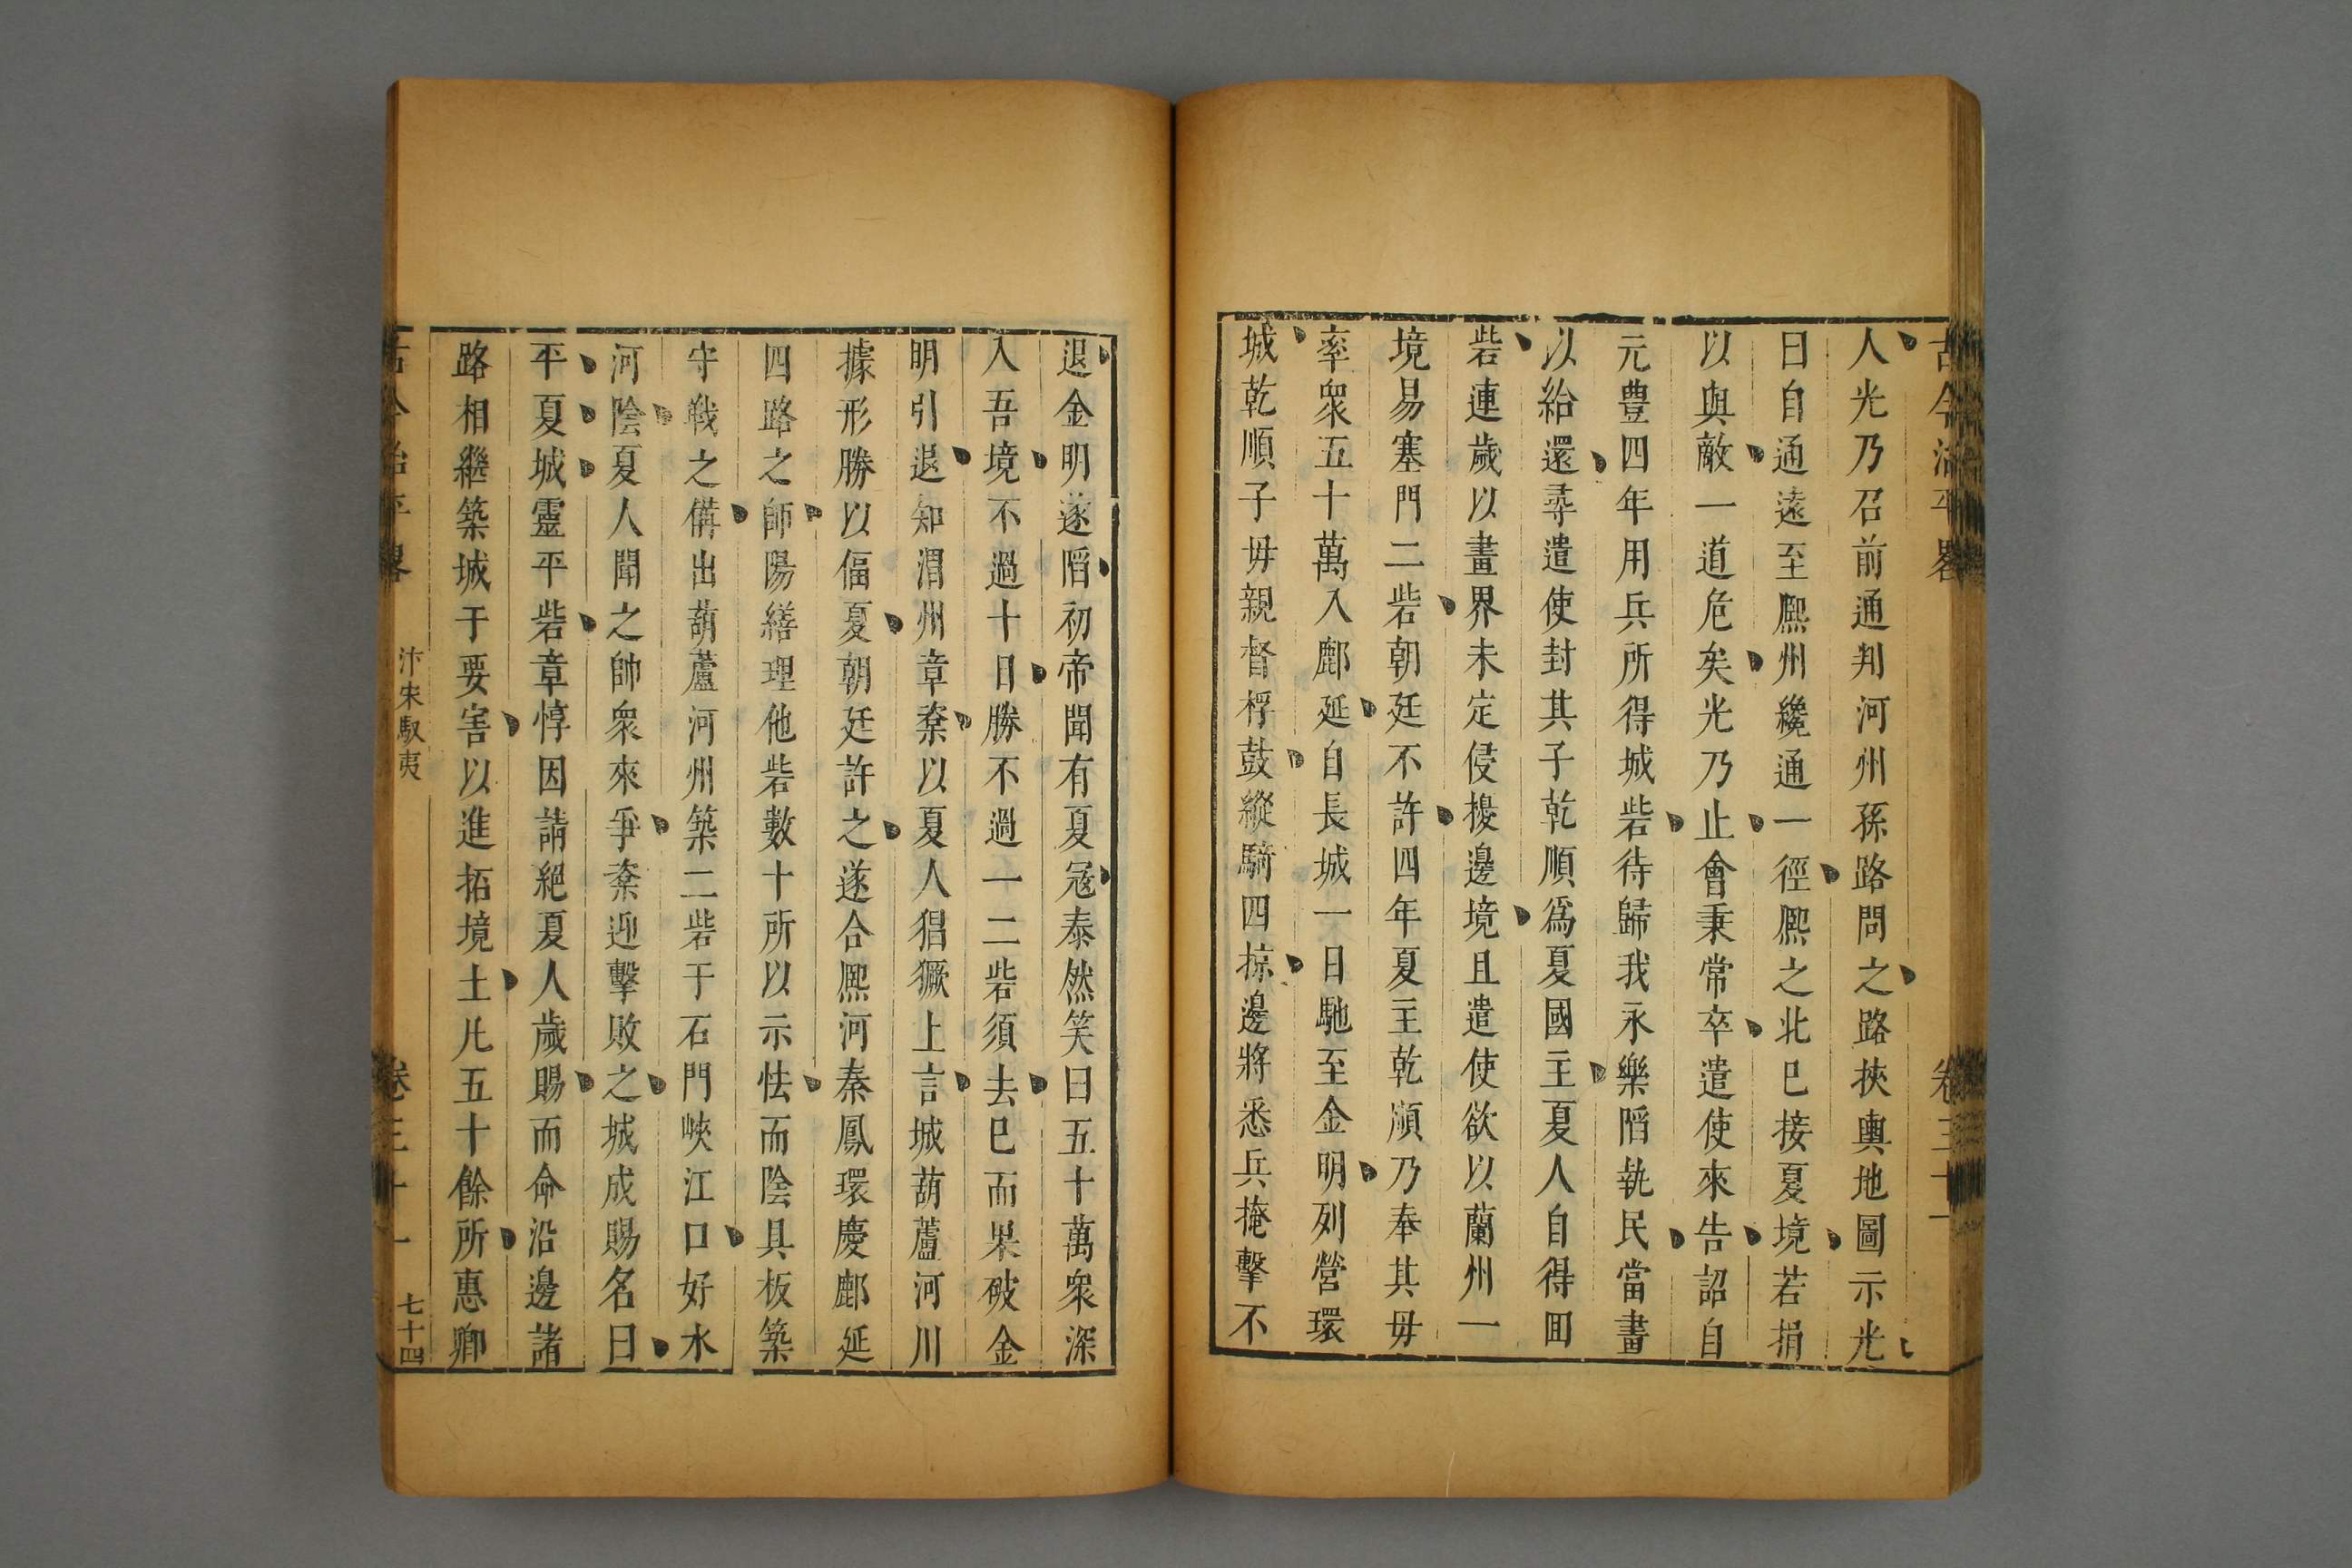 古今治平畧 卷三十一
人光乃召前通判河州孫路問之路挾輿地圖示光
曰自通遠至熈州纔通一徑熈之北已接夏境若捐
以與敵一道危矣光乃止會秉常卒遣使來告詔自
元豊四年用兵所得城砦待歸我永樂䧟執民當畫
以給還尋遣使封其子乾順爲夏國主夏人自得囬
砦連歲以畫界未定侵擾邊境且遣使欲以蘭州一
境易塞門二砦朝廷不許四年夏主乾順乃奉其毋
率衆五十萬入鄜延自長城一日馳至金明列營環
城乾順子毋親督桴鼓縱騎四掠邊將悉兵掩擊不
退金明遂䧟初帝聞有夏冦泰然笑曰五十萬衆深
入吾境不過十日勝不過一二砦須去已而果破金
明引退知渭州章楶以夏人猖獗上言城葫蘆河川
據形勝以偪夏朝廷許之遂合熈河秦鳳環慶鄜延
四路之師陽繕理他砦數十所以示怯而陰具板築
守戰之備出葫蘆河州築二砦于石門峽江口好水
河陰夏人聞之帥衆來爭楶迎擊敗之城成賜名曰
平夏城靈平砦章惇因請絕夏人歲賜而命沿邊諸
路相繼築城于要害以進拓境土凡五十餘所惠卿
古今治平畧 汴宋馭夷 卷三十一 七十四